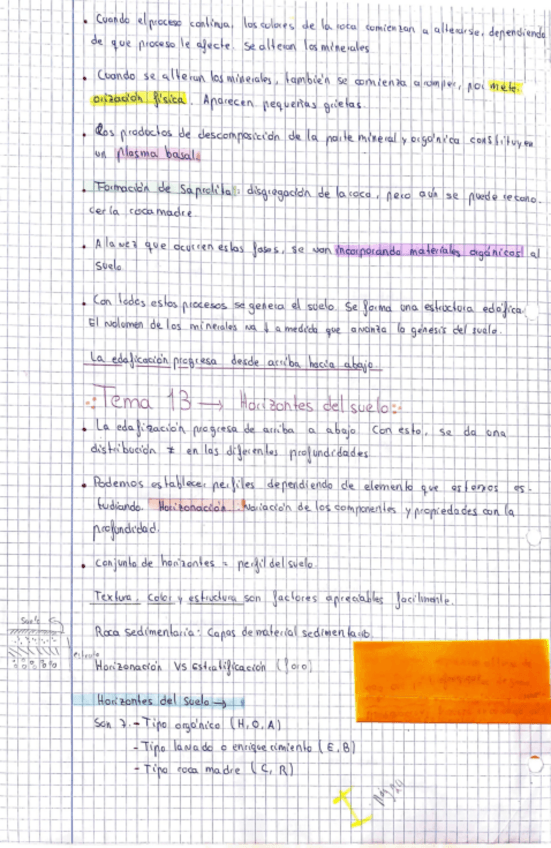 • Cuando el proceso continua, los colores de la roca comienzan a alterarse, dependiendo
de que proceso le afecte. Se alteran los minerales.
• Cuando se alteran los minerales, también se comienza a romper, por mete-
orización física. Aparecen pequeñas grietas.
• Los productos de descomposición de la parte mineral y orgánica constituyen
un plasma basal.
• Formación de Saprolita: disgregación de la roca, pero aún se puede recono-
cer la roca madre.
• A la vez que ocurren estas fases, se van incorporando materiales orgánicos al
suelo.
• Con todos estos procesos se genera el suelo. Se forma una estructura edáfica.
El volumen de los minerales va ↓ a medida que avanza la génesis del suelo.
La edafización progresa desde arriba hacia abajo.
Tema 13 → Horizontes del suelo
• La edafización progresa de arriba a abajo. Con esto, se da una
distribución ≠ en las diferentes profundidades
• Podemos establecer perfiles dependiendo de elemento que estemos es-
tudiando. Horizonación: Variación de los componentes y propiedades con la
profundidad.
• Conjunto de horizontes = perfil del suelo.
Textura, color y estructura son factores apreciables facilmente.
Suelo
Roca sedimentaria: Capas de material sedimentario.
Horizonación VS estratificación (foto)
Horizontes del Suelo →
Son 7. - Tipo orgánico (H, O, A)
- Tipo lavado o enriquecimiento (E, B)
- Tipo roca madre (C, R)